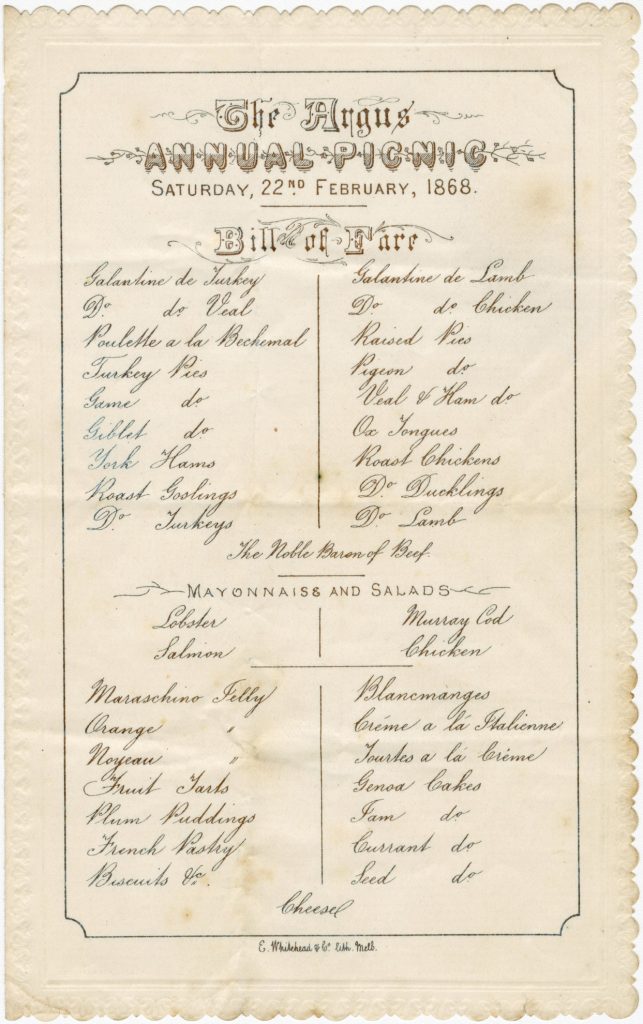 The Argus
ANNUAL PICNIC
SATURDAY, 22ND FEBRUARY, 1868.
Bill of Fare
Galantine de Turkey
Do do Veal
Poulette a la Bechemal
Turkey Pies
Game do
Giblet do
York Hams
Roast Goslings
Do Turkeys
Galantine de Lamb
Do do Chicken
Raised Pies
Pigeon do
Veal & Ham do
Ox Tongues
Roast Chickens
Do Ducklings
Do Lamb
The Noble Baron of Beef.
MAYONNAISS AND SALADS
Lobster
Salmon
Murray Cod
Chicken
Maraschino Jelly
Orange "
Noyeau "
Fruit Tarts
Plum Puddings
French Pastry
Biscuits &c.
Blancmanges
Créme a lá Italienne
Tourtes a lá Créme
Genoa Cakes
Jam do
Currant do
Seed do
Cheese
E. Whitehead & Co. lith. Melb.